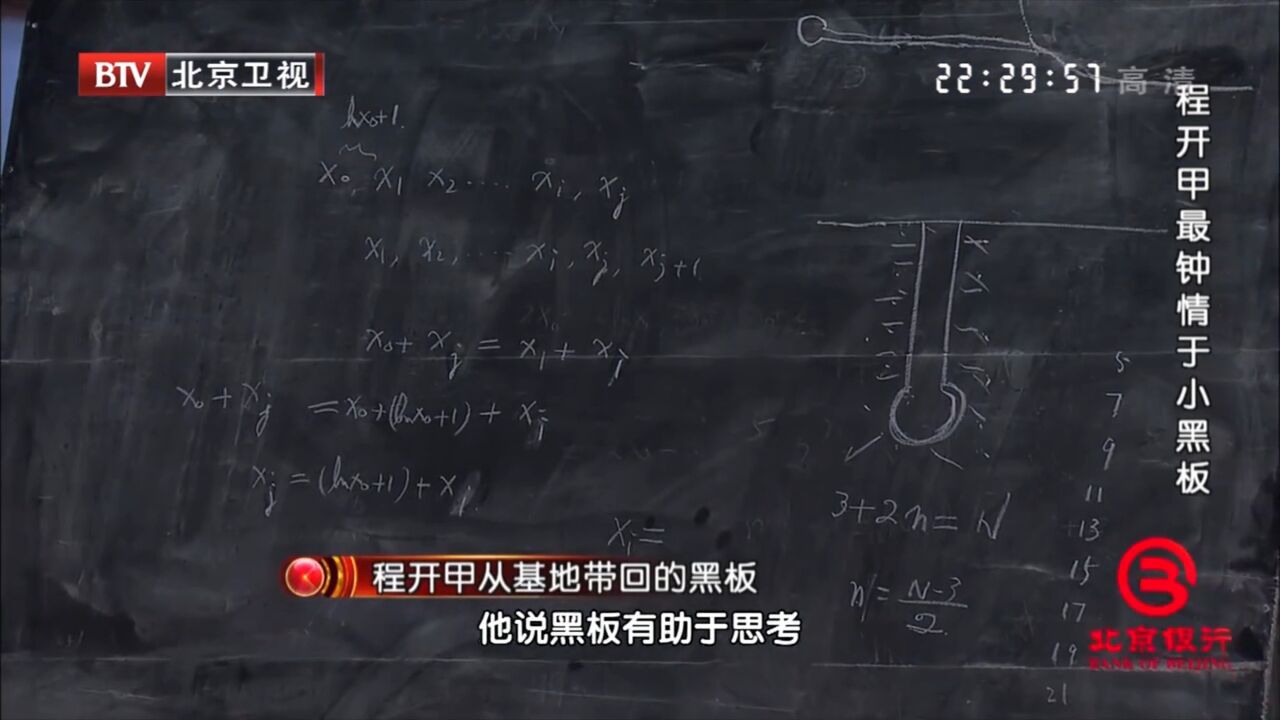 BTV 北京卫视
22:29:57 高清
程开甲最钟情于小黑板
lnx₀+1.
x₀, x₁ x₂ .... xᵢ, xⱼ
x₁, x₂, .... xᵢ, xⱼ, xⱼ+1
x₀ + xⱼ = x₁ + xⱼ
x₀ + xⱼ = x₀ + (lnx₀+1) + xⱼ
xⱼ = (lnx₀+1) + xⱼ
xᵢ =
3+2n=N
n = (N-3)/2
5
7
9
11
13
15
17
19
21
程开甲从基地带回的黑板
他说黑板有助于思考
北京银行
BANK OF BEIJING